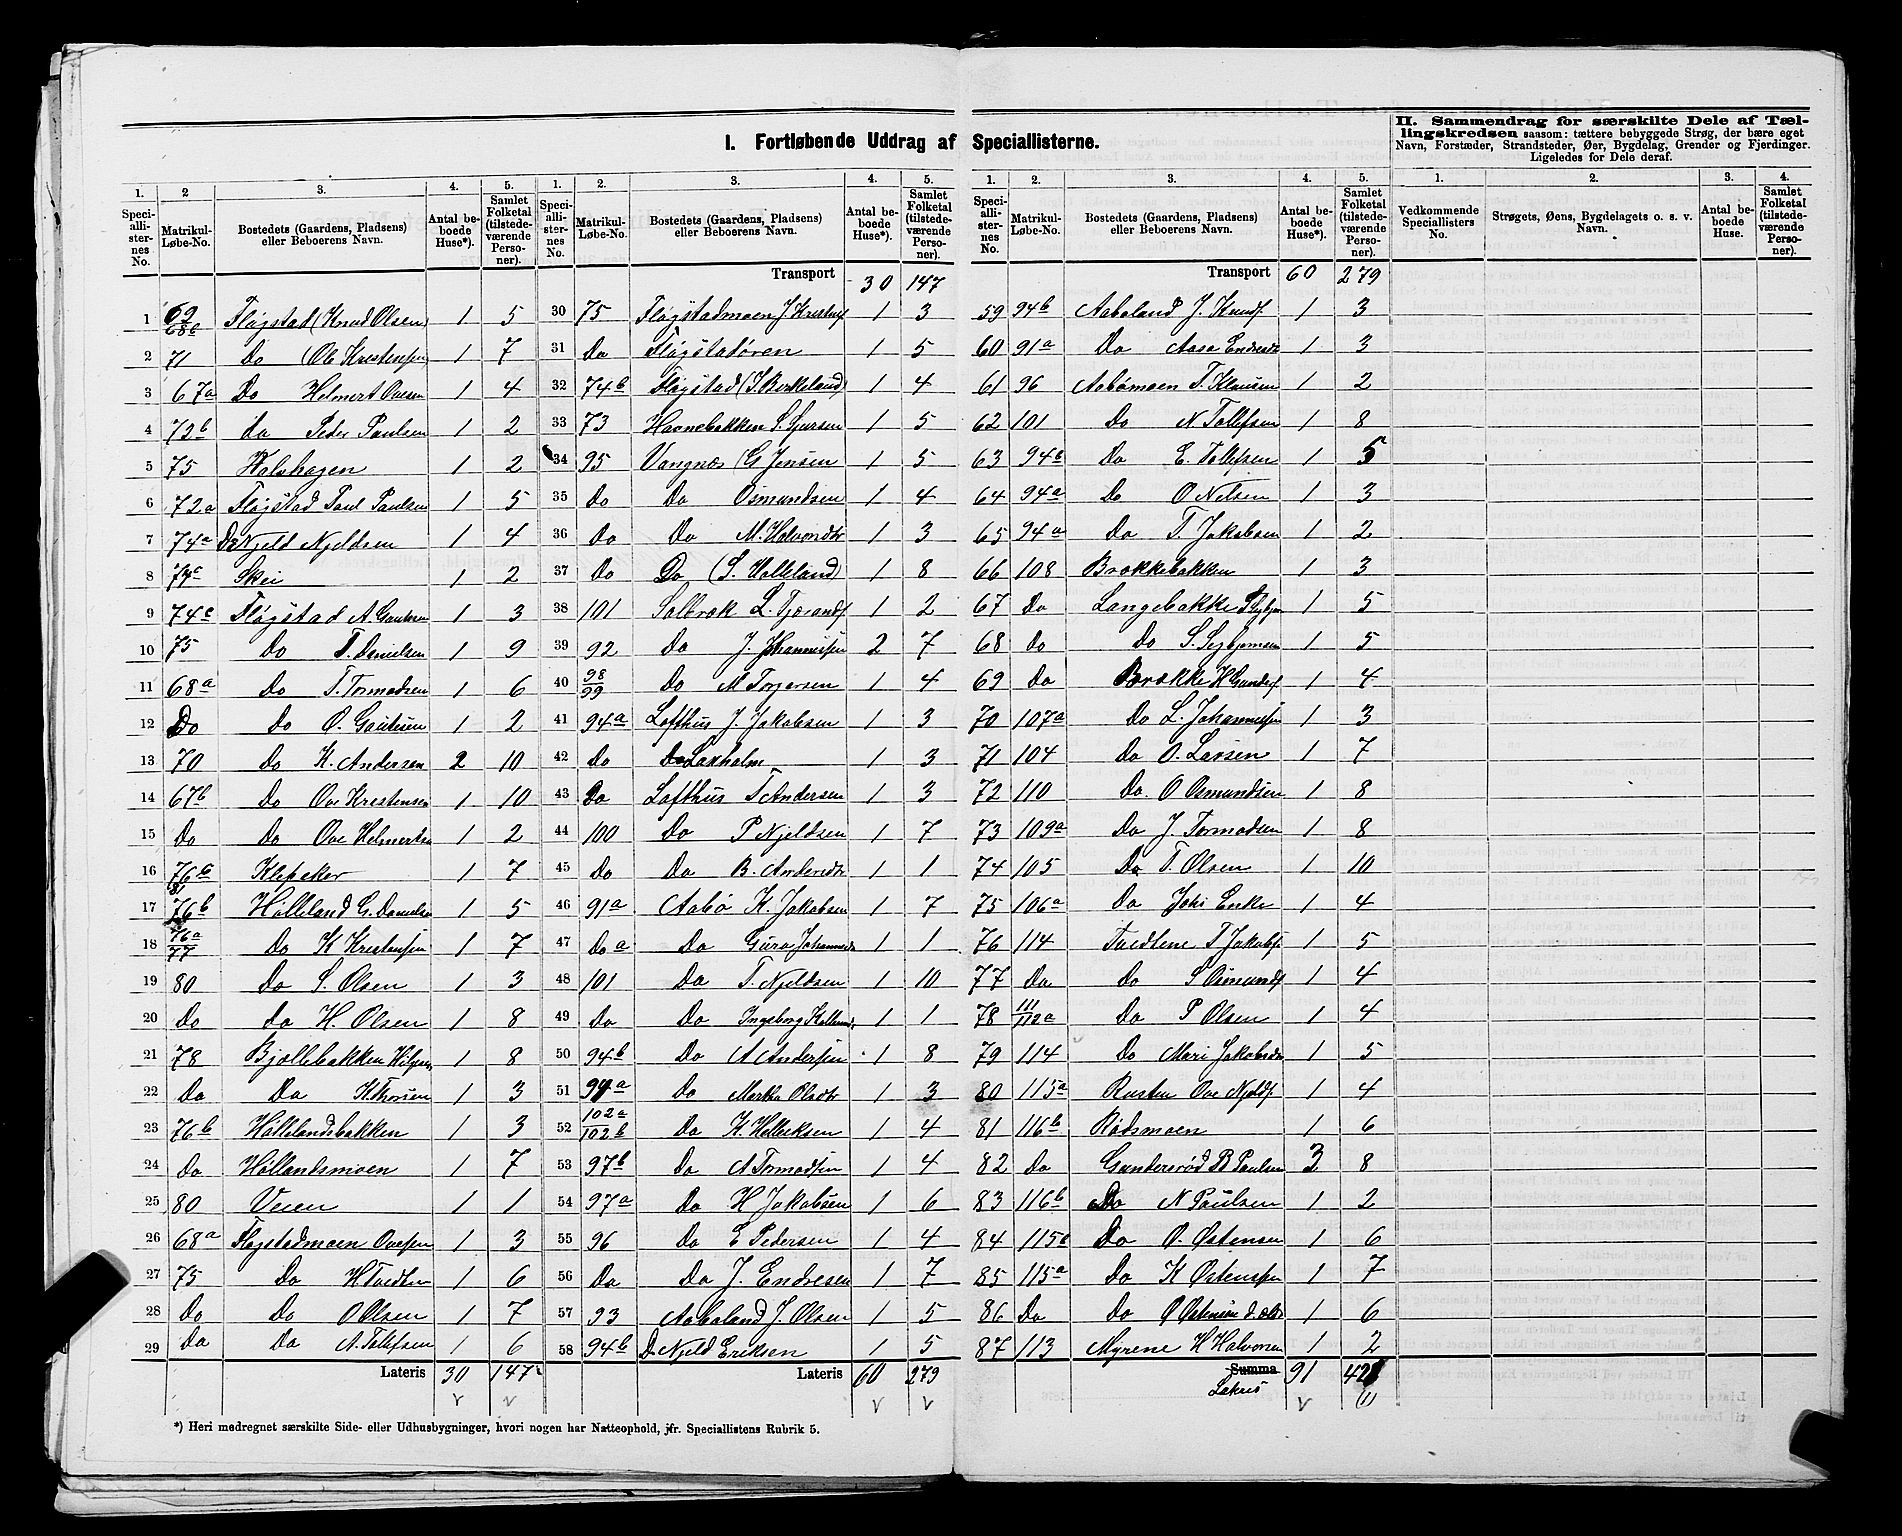 I. Fortløbende Uddrag af Speciallisterne.
II. Sammendrag for særskilte Dele af Tæl-
lingskredsen saasom: tættere bebyggede Strøg, der bære eget
Navn, Forstæder, Strandsteder, Øer, Bygdelag, Grender og Fjerdinger.
Ligeledes for Dele deraf.
1. 2 3. 4. 5.
Speciallisternes No. Matrikul-Løbe-No. Bostedets (Gaardens, Pladsens) eller Beboerens Navn. Antal beboede Huse*). Samlet Folketal (tilstedeværende Personer).
1 69/68a Fløgstad (Knud Olsen) 1 5
2 71 Do (Ole Krestensen 1 7
3 67a Do Helmert Ovesen 1 4
4 72b do Peder Paulsen 1 2
5 75 Halshagen 1 2
6 72a Fløgstad Paul Paulsen 1 5
7 74a Do Njeld Njeldsen 1 4
8 74c Skei 1 2
9 74c Fløgstad A. Gautesen 1 3
10 75 Do T. Danielsen 1 9
11 68a Do T. Tormodsen 1 6
12 Do Do O. Gautesen 1 2
13 70 Do K. Andersen 2 10
14 67b Do Ove Krestensen 1 10
15 Do Do Ove Helmertsen 1 2
16 76c Klepeker 1 7
17 76b Hølleland G. Danielsen 1 5
18 76a/77 Do K Krestensen 1 7
19 80 Do S. Olsen 1 3
20 Do Do H. Olsen 1 8
21 78 Bjællebakken 1 8
22 Do Do K Thorsen 1 3
23 76b Høllelandsbakken 1 3
24 Do Høllandsmoen 1 7
25 80 Veien 1 1
26 68a Fløgstadmoen Ovesen 1 3
27 75 Do H Tvedten 1 6
28 Do Do O Olsen 1 7
29 Do Do A. Tollefsen 1 6
Lateris 30 147
1. 2. 3. 4. 5.
Speciallisternes No. Matrikul-Løbe-No. Bostedets (Gaardens, Pladsens) eller Beboerens Navn. Antal beboede Huse*). Samlet Folketal (tilstedeværende Personer).
Transport 30 147
30 75 Fløgstadmoen J. Krestens 1 3
31 Do Fløgstadøren 1 5
32 74b Fløgstad (S. Birkeland) 1 4
33 73 Havnebakken S. Gjursen 1 5
34 95 Vangnæs (G Jensen 1 5
35 Do Do Osmundsen 1 4
36 Do Do M. Halvorsdtr 1 3
37 Do Do (S. Helleland) 1 8
38 101 Solbrak L. Tjerands 1 2
39 92 Do J. Johannessen 2 7
40 98/99 Do M Torgersen 1 4
41 94a Lofthus J. Jakobsen 1 3
42 Do Do Laxholm 1 3
43 Do Lofthus T Andersen 1 3
44 100 Do P Njeldsen 1 7
45 Do Do B. Andersdtr 1 1
46 91a Aabø K. Jakobsen 1 7
47 Do a Do Guro Johannesdr 1 1
48 101 Do T. Njeldsen 1 10
49 Do Do Ingeborg 1 1
50 94b Do A Andersen 1 8
51 94a Do Martha Olsdtr 1 3
52 102a/102b Do K. Helleksen 1 4
53 97b Do A Tormodsen 1 4
54 97a Do H Jakobsen 1 6
55 96 Do E Pedersen 1 4
56 Do Do J. Endresen 1 7
57 93 Aabøland J. Olsen 1 5
58 94b Do Njeld Eriksen 1 5
Lateris 60 279
1. 2. 3. 4. 5.
Speciallisternes No. Matrikul-Løbe-No. Bostedets (Gaardens, Pladsens) eller Beboerens Navn. Antal beboede Huse*). Samlet Folketal (tilstedeværende Personer).
Transport 60 279
59 94b Aabøland J. Knuds 1 3
60 91a Do Aasa Endresdtr 1 3
61 96 Aabømoen T. Klausen 1 2
62 101 Do N Tollefsen 1 8
63 94b Do E. Tollefsen 1 5
64 94a Do O Nelsen 1 3
65 94a Do T. Jakobsen 1 2
66 108 Brækkebakken 1 3
67 Do Langebakke 1 5
68 Do Do S. Segbjørnsen 1 5
69 Do Brække H Gunders 1 4
70 107a Do L. Johannessen 1 3
71 104 Do O. Larsen 1 7
72 110 Do O Osmundsen 1 8
73 109a Do J. Tormodsen 1 8
74 105 Do T. Olsen 1 10
75 106a Do Johs Enke 1 4
76 114 Tvedtene T Jakobs 1 5
77 Do Do S Osmunds 1 4
78 111/112a Do P Olsen 1 4
79 114 Do Mari Jakobsdtr 1 5
80 115a Rusten Ove Njelds 1 4
81 116b Rødsmoen 1 6
82 Do Gundersrød P. Paulsen 3 8
83 116b Do N Paulsen 1 2
84 115a Do O. Østensen 1 6
85 115a Do K Østensen 1 7
86 Do Do O Østensen d. æld. 1 6
87 113 Myrene H Halvorsen 1 2
Summa
Lateris 91 421
(1)
1. 2. 3. 4.
Vedkommende Speciallisters No. Strøgets, Øens, Bygdelagets o. s. v. Navn. Antal beboede Huse. Samlet Folketal (tilstedeværende Personer).
*) Heri medregnet særskilte Side- eller Udhusbygninger, hvori nogen har Natteophold, jfr. Speciallistens Rubrik 5.